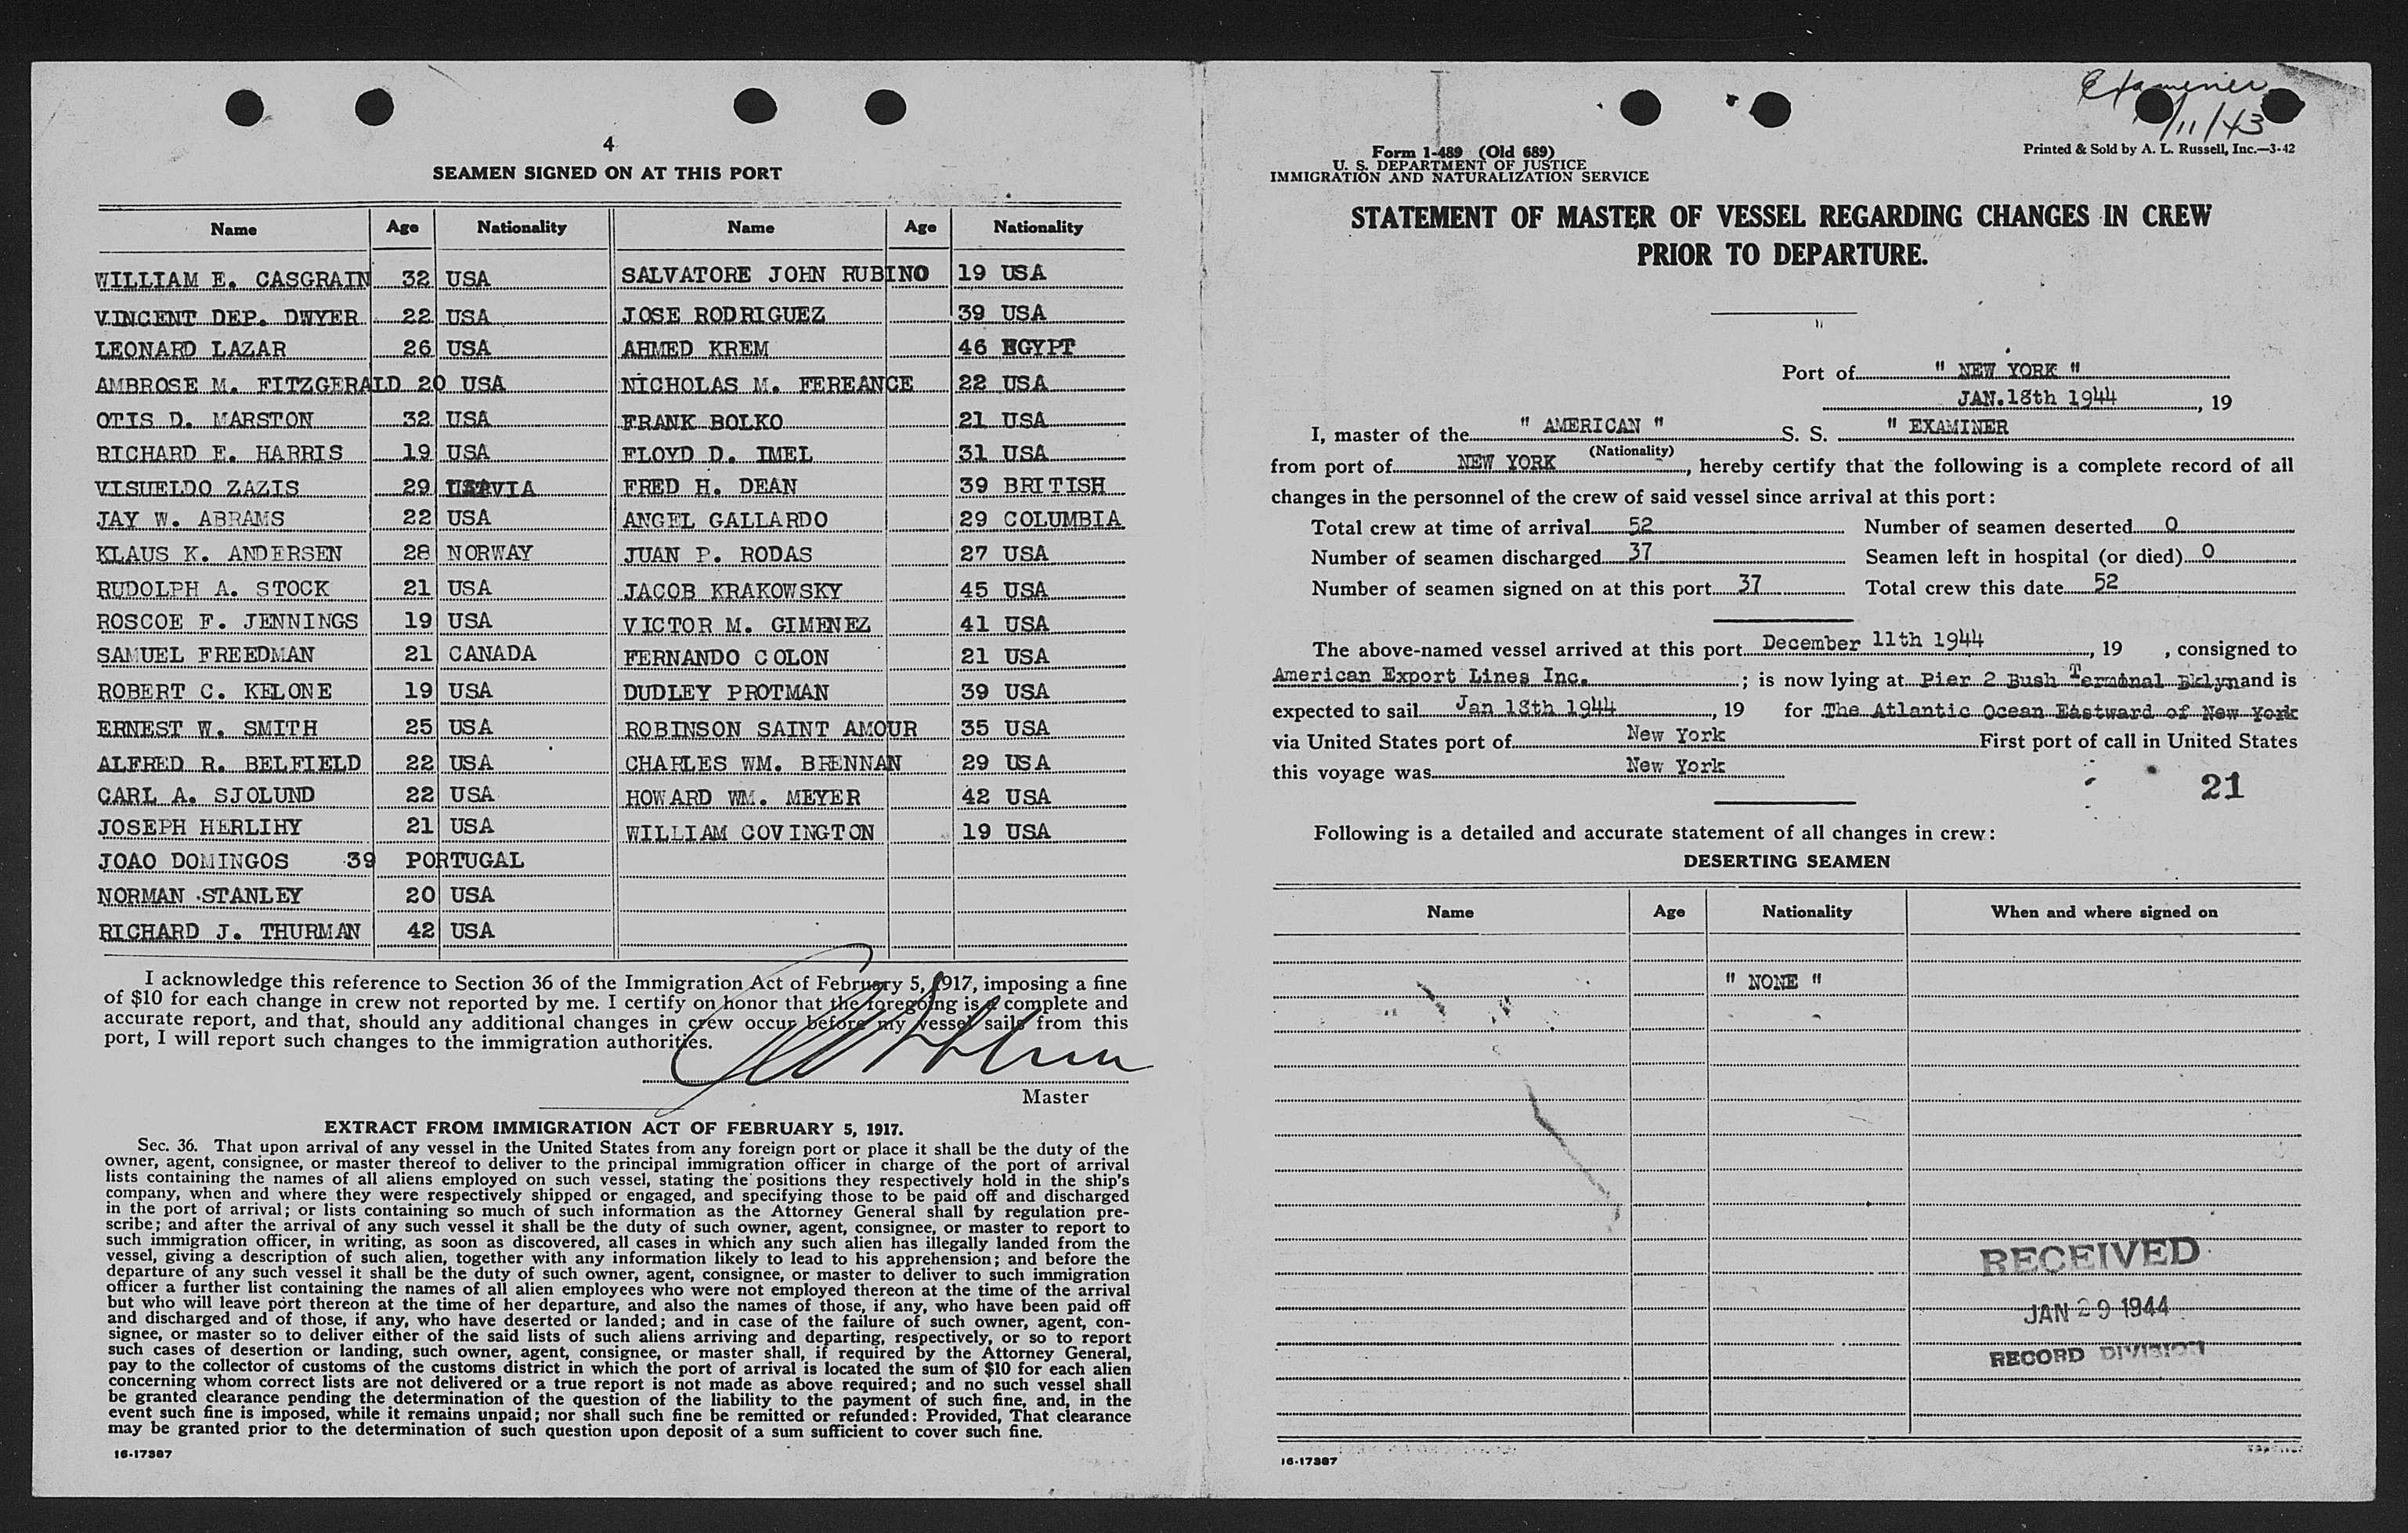 4
SEAMEN SIGNED ON AT THIS PORT
Name Age Nationality Name Age Nationality
WILLIAM E. CASGRAIN 32 USA SALVATORE JOHN RUBINO 19 USA
VINCENT DEP. DWYER 22 USA JOSE RODRIGUEZ 39 USA
LEONARD LAZAR 26 USA AHMED KREM 46 EGYPT
AMBROSE M. FITZGERALD 20 USA NICHOLAS M. FEREANCE 22 USA
OTIS D. MARSTON 32 USA FRANK BOLKO 21 USA
RICHARD E. HARRIS 19 USA FLOYD D. IMEL 31 USA
VISUELDO ZAZIS 29 FRED H. DEAN 39 BRITISH
JAY W. ABRAMS 22 USA ANGEL GALLARDO 29 COLUMBIA
KLAUS K. ANDERSEN 28 NORWAY JUAN P. RODAS 27 USA
RUDOLPH A. STOCK 21 USA JACOB KRAKOWSKY 45 USA
ROSCOE F. JENNINGS 19 USA VICTOR M. GIMENEZ 41 USA
SAMUEL FREEDMAN 21 CANADA FERNANDO COLON 21 USA
ROBERT C. KELONE 19 USA DUDLEY PROTMAN 39 USA
ERNEST W. SMITH 25 USA ROBINSON SAINT AMOUR 35 USA
ALFRED R. BELFIELD 22 USA CHARLES WM. BRENNAN 29 USA
CARL A. SJOLUND 22 USA HOWARD WM. MEYER 42 USA
JOSEPH HERLIHY 21 USA WILLIAM COVINGTON 19 USA
JOAO DOMINGOS 39 PORTUGAL
NORMAN STANLEY 20 USA
RICHARD J. THURMAN 42 USA
I acknowledge this reference to Section 36 of the Immigration Act of February 5, 1917, imposing a fine
of $10 for each change in crew not reported by me. I certify on honor that the foregoing is a complete and
accurate report, and that, should any additional changes in crew occur before my vessel sails from this
port, I will report such changes to the immigration authorities.
Master
EXTRACT FROM IMMIGRATION ACT OF FEBRUARY 5, 1917.
Sec. 36. That upon arrival of any vessel in the United States from any foreign port or place it shall be the duty of the
owner, agent, consignee, or master thereof to deliver to the principal immigration officer in charge of the port of arrival
lists containing the names of all aliens employed on such vessel, stating the positions they respectively hold in the ship's
company, when and where they were respectively shipped or engaged, and specifying those to be paid off and discharged
in the port of arrival; or lists containing so much of such information as the Attorney General shall by regulation pre-
scribe; and after the arrival of any such vessel it shall be the duty of such owner, agent, consignee, or master to report to
such immigration officer, in writing, as soon as discovered, all cases in which any such alien has illegally landed from the
vessel, giving a description of such alien, together with any information likely to lead to his apprehension; and before the
departure of any such vessel it shall be the duty of such owner, agent, consignee, or master to deliver to such immigration
officer a further list containing the names of all alien employees who were not employed thereon at the time of the arrival
but who will leave port thereon at the time of her departure, and also the names of those, if any, who have been paid off
and discharged and of those, if any, who have deserted or landed; and in case of the failure of such owner, agent, con-
signee, or master so to deliver either of the said lists of such aliens arriving and departing, respectively, or so to report
such cases of desertion or landing, such owner, agent, consignee, or master shall, if required by the Attorney General,
pay to the collector of customs of the customs district in which the port of arrival is located the sum of $10 for each alien
concerning whom correct lists are not delivered or a true report is not made as above required; and no such vessel shall
be granted clearance pending the determination of the question of the liability to the payment of such fine, and, in the
event such fine is imposed, while it remains unpaid; nor shall such fine be remitted or refunded: Provided, That clearance
may be granted prior to the determination of such question upon deposit of a sum sufficient to cover such fine.
16-17387
Examiner
/11/43
Form 1-489 (Old 689)
U. S. DEPARTMENT OF JUSTICE
IMMIGRATION AND NATURALIZATION SERVICE
Printed & Sold by A. L. Russell, Inc.—3-42
STATEMENT OF MASTER OF VESSEL REGARDING CHANGES IN CREW
PRIOR TO DEPARTURE.
Port of " NEW YORK "
JAN.18th 1944, 19
I, master of the " AMERICAN " S. S. " EXAMINER
(Nationality)
from port of NEW YORK, hereby certify that the following is a complete record of all
changes in the personnel of the crew of said vessel since arrival at this port:
Total crew at time of arrival 52 Number of seamen deserted 0
Number of seamen discharged 37 Seamen left in hospital (or died) 0
Number of seamen signed on at this port 37 Total crew this date 52
The above-named vessel arrived at this port December 11th 1944, 19 , consigned to
American Export Lines Inc. ; is now lying at Pier 2 Bush Terminal Bklyn and is
expected to sail Jan 18th 1944, 19 for The Atlantic Ocean Eastward of New York
via United States port of New York First port of call in United States
this voyage was New York
21
Following is a detailed and accurate statement of all changes in crew:
DESERTING SEAMEN
Name Age Nationality When and where signed on
" NONE "
RECEIVED
JAN 29 1944
RECORD DIVISION
16-17387